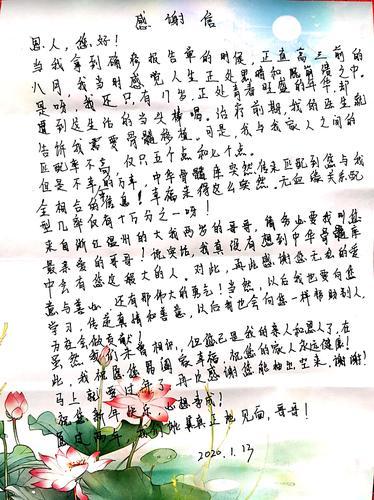 感谢信
恩人，您好！
当我拿到确诊报告单的时候，正直高三前的
八月，我当时感觉人生正处黑暗和
是呀，我还只有17岁，正处青春旺盛的年华，却
遭到这生活的当头棒喝。治疗前期，我的医生就
告诉我需要骨髓移植。可是，我与我家人之间的
匹配率不高，仅只五个点和七个点。
但是不幸的万幸，中华骨髓库突然传来匹配到您与我
全相合的消息！幸福来得这么突然。无血缘关系配
型几率仅有十万分之一呀！
来自浙江温州的大我两岁的哥哥，请务必要我叫您
最亲爱的哥哥！说实话，我真没有想到中华骨髓库
中会有您这般大的人，对此，再此感谢您无私的爱
意与善心，还有那伟大的勇气！当然，以后我也要向您
学习，传递真情和善意，以后我也会向您一样帮助别人，
为社会做贡献！
虽然我们未曾相识，但您已是我的亲人和恩人了，在
此，我祝愿您阖家幸福，祝您的家人永远健康！
马上就要过年了，再次感谢您能抽出空来，谢谢！
祝您新年快乐，心想事成！
愿过两年，我们能真真正正地见面，哥哥！
2020.1.13